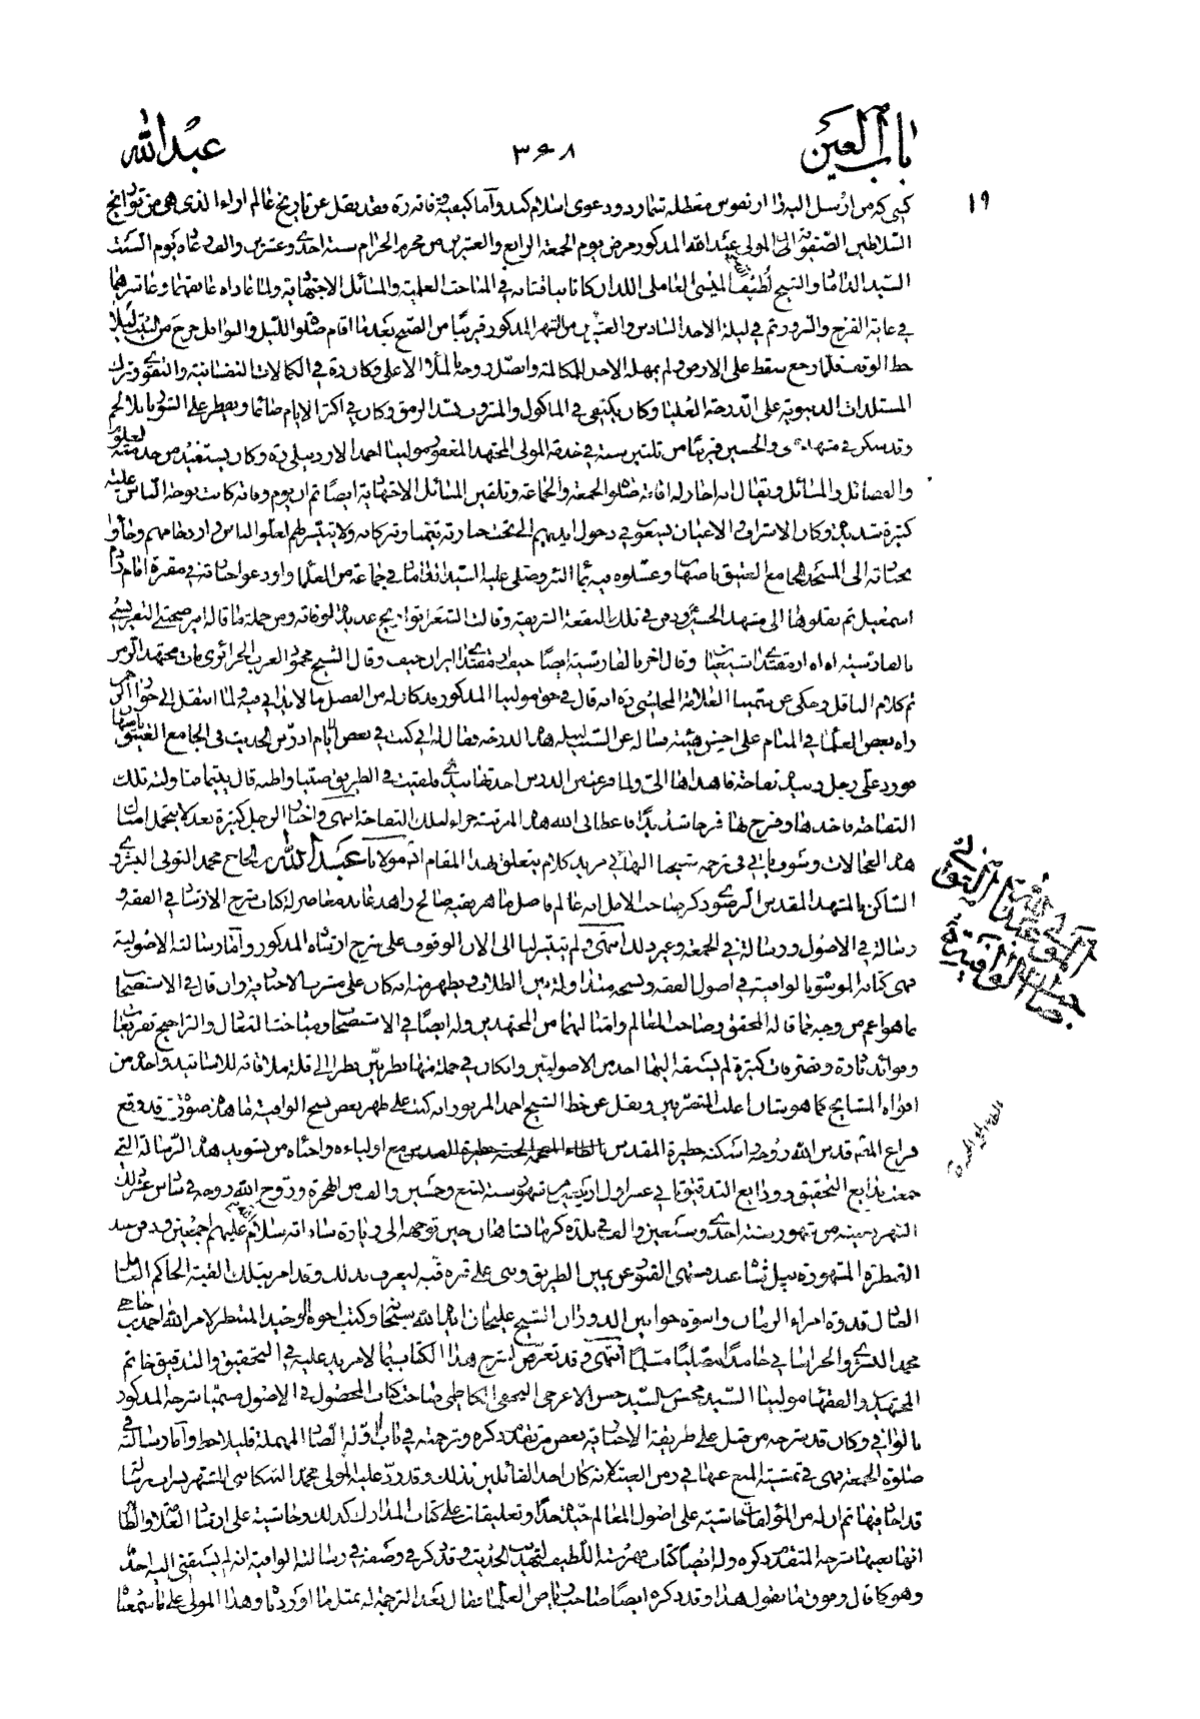 باب العين
٣٦٨
عبد الله
١٩
السلاطين الصفوية ان المولى عبد الله المذكور مرض يوم الجمعة الرابع والعشرين من محرم الحرام سنة احدى وعشرين والف وعاده يوم السبت
السيد الداماد والشيخ لطف الله الميسي العاملي اللذان كانا في المباحث العلمية والمسائل الاجتهادية ولما عاداه عانقهما وعاشرهما
في غاية الفرح والسرور ثم في ليلة الاحد السادس والعشرين من الشهر المذكور قريبا من الصبح بعد ما اقام صلوة الليل والنوافل خرج من البيت ليلاحظ
الوقت فلما رجع سقط على الارض ولم يمهله الاجل للمكالمة واتصل روحه بالملأ الاعلى وكان ره في الكمالات النفسانية والتقوى وترك
المستلذات الدنيوية على الدرجة العليا وكان يكتفي في الماكول والمشروب بسد الرمق وكان في اكثر الايام صائما ويفطر على الشوربا بلا لحم
وقد سكن في مشهد والحسين قريبا من ثلثين سنة في خدمة المولى المجتهد المغفور مولينا احمد الاردبيلي ره وكان يستفيد من خدمته العلوم
والفضائل والمسائل ويقال انه اجاز له اقامة صلوة الجمعة والجماعة وتلقين المسائل الاجتهادية ايضا ثم ان يوم وفاته كانت نوحة الناس عليه
كثيرة شديدة وكان الاشراف والاعيان يسعون في وصول ايديهم الى تحت جنازته تيمنا وتبركا به ولا يتيسر لهم لغلو الناس وازدحامهم وجاؤا
بجنازته الى المسجد الجامع العتيق باصبهان وغسلوه فيه بماء البئر وصلى عليه السيد الداماد في جماعة من العلماء واودعوا جنازته في مقبرة امام زاده
اسمعيل ثم نقلوها الى مشهد الحسين ودفن في تلك البقعة الشريفة وقالت الشعراء تواريخ عديدة لوفاته ومن جملة ما قاله
بالفارسية اه اه از مقتداى شيعيان وقال اخر بالفارسية ايضا حيف از مقتداى ايران حيف وقال الشيخ محمود العرب الجزائري مات مجتهد الزمن
تم كلام الناقل وحكى عن سمينا العلامة المجلسي ره انه قال في حق مولينا المذكور قد كان له من الفضل ما لا يزاد فيه ولما انتقل الى جوار
راه بعض العلماء في المنام على احسن هيئة فساله عن السبب لنيله هذه الدرجة فقال له اني كنت في بعض الايام ادرس الحديث في الجامع العتيق باصبهان
فورد على رجل وبيده تفاحة فاهداها الى ولما فرغت من الدرس اخذتها بيدي فلقيت في الطريق صبيا قال يتيما فناولته تلك
التفاحة فاخذها وفرح لها فرحا شديدا فاعطاني الله هذه المرتبة جزاء لتلك التفاحة انتهى
هذه المقالات وسوف ياتي في ترجمة شيخنا البهائي مزيد كلام يتعلق بهذا المقام مولانا عبد الله بن الحاج محمد التوني البشروي
الساكن بالمشهد المقدس الرضوي ذكر صاحب الامل انه عالم فاضل ماهر فقيه صالح زاهد عابد معاصر له كتاب شرح الارشاد في الفقه و
رسالة في الاصول ورسالة في الجمعة وغير ذلك انتهى ولم يتيسر لنا الى الان الوقوف على شرح ارشاده المذكور واما رسالته الاصولية
فهي كتابه الموسوم بالوافية في اصول الفقه ونسخه متداولة بين الطلاب ويظهر منه انه كان على مشرب الاخبارية وان قال في الاستصحاب
بما هو اعم من وجه مما قاله المحقق وصاحب المعالم وامثالهما من المجتهدين وله ايضا في الاستصحاب ومباحث التعادل والتراجيح تفريعات
وفوائد نادرة وتصرفات كثيرة لم يسبقه اليها احد من الاصوليين وان كان في جملة منها نظر بين نظرا الى قلة ملاقاته للاساتيد واخذه من
افواه المشايخ كما هو شان اغلب المتصرفين ونقل عن خط الشيخ احمد المزبور انه كتب على ظهر بعض نسخ الوافية ما هذه صورته قد وقع
فراغ المصنف قدس الله روحه واسكنه حظيرة القدس مع اوليائه واحبائه من تسويد هذه الرسالة التي
جمعت بدايع التحقيق وودايع التدقيق ثاني عشر اول الربيعين من شهور سنة تسع وخمسين والف من الهجرة وروح الله روحه في سادس عشر ذلك
الشهر بعينه من شهور سنة احدى وسبعين والف في بلدة كرمانشاهان حين توجهه الى زيارة ساداته سلام الله عليهم اجمعين ودفن عند
القنطرة المشهورة ببل شاه عند منتهى القبور عن يمين الطريق وبنى على قبره قبة ليعرف بذلك وقد امر بتلك القبة الحاكم العادل
قدوة امراء الزمان واسوة خوانين الدوران الشيخ عليخان ايده الله سبحانه وكتب اخوه الوحيد المنتظر لامر الله احمد بن حاجى
محمد البشروي الخراساني حامدا مصليا مسلما انتهى وقد تعرض لشرح هذا الكتاب بما لا مزيد عليه في التحقيق والتدقيق خاتم
المجتهدين والفقهاء مولينا السيد محسن بن السيد حسن الاعرجي النجفي الكاظمي صاحب كتاب المحصول في الاصول مسميا شرحه المذكور
بالوافي وكان قد شرحه من قبل على طريقة الاخبارية بعض من تقدم ذكره وترجمته في باب الصاد المهملة فليلاحظ واما رسالته في
صلوة الجمعة فهي في تمشية المنع عنها في زمن الغيبة لانه كان احد القائلين بذلك وقد رد عليه المولى محمد السكابني المشتهر بسراب برسالة
فيها ثم ان له من المؤلفات حاشية على اصول المعالم جيدة جدا وتعليقات على كتاب المدارك كذلك وحاشية على ارشاد العلامة والظاهر
انها بعينها شرحه المتقدم ذكره وله ايضا كتاب فهرسته اللطيف لتهذيب الحديث وقد ذكر في وصفه في رسالته الوافية انه لم يسبقني اليه احد
وهو كما قال وفوق ما نقول هذا وقد ذكره ايضا صاحب رياض العلماء فقال بعد الترجمة له بمثل ما اوردنا وهذا المولى على ما سمعنا
المولى عبد الله التوني
صاحب الوافية